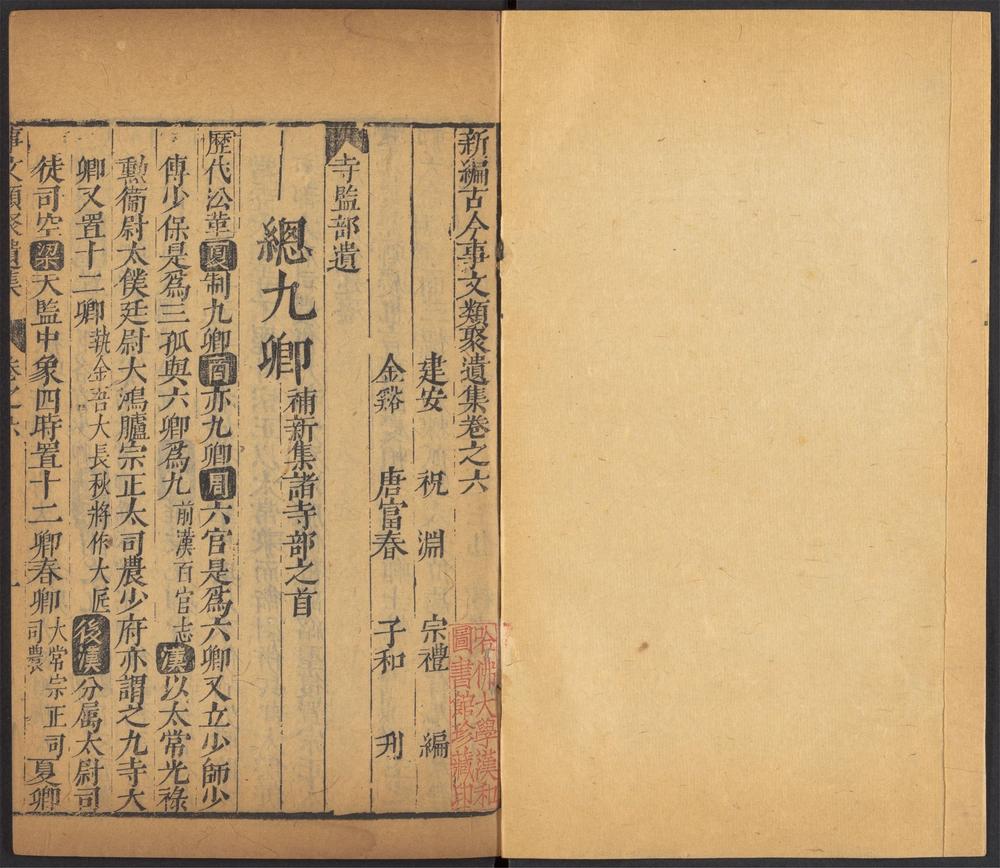 新編古今事文類聚遺集卷之六
建安 祝 淵 宗禮 編
金谿 唐富春 子和 刋
寺監部遺
總九卿 補新集諸寺部之首
歷代沿革夏制九卿商亦九卿周六官是爲六卿又立少師少
傅少保是爲三孤與六卿爲九前漢百官志漢以太常光祿
勲衞尉太僕廷尉大鴻臚宗正大司農少府亦謂之九寺大
卿又置十二卿執金吾大長秋將作大匠後漢分屬太尉司
徒司空梁天監中象四時置十二卿春卿大常宗正司司農夏卿
事文類聚遺集 卷之六 一
哈佛大學漢和圖書館珍藏印